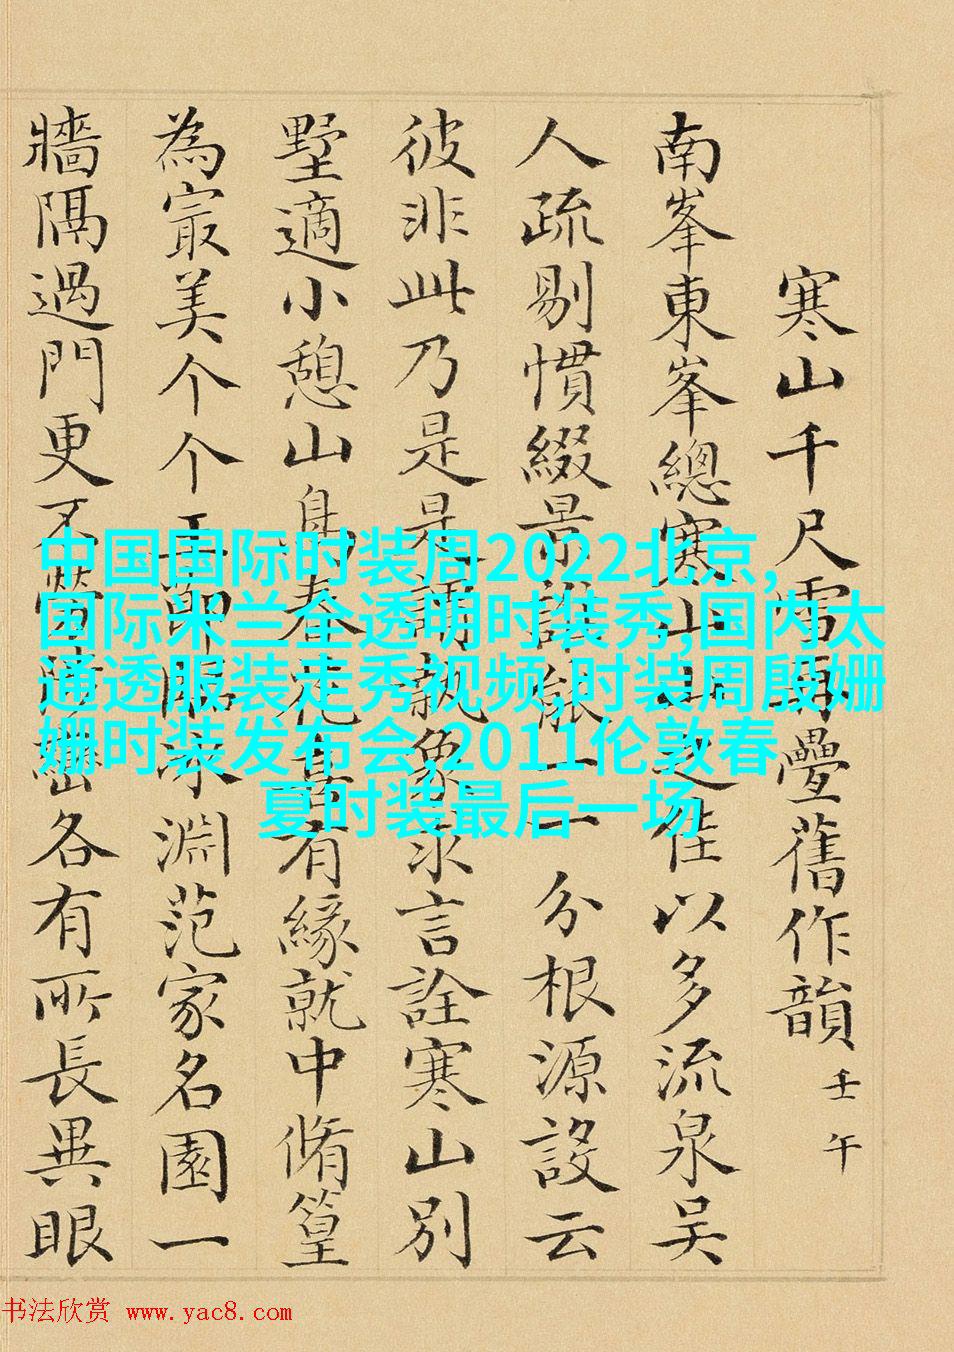 寒山千尺雪再疊舊作韻 壬午
南峯東峯總寒山山之佳以多流泉吴
人疏剔慣綴景誰能一一分根源設云
彼非此乃是是孰象永言詮寒山别
墅適小憩山鳥春花喜有緣就中脩篁
為冣美个个玉節臨冰淵范家名園一
牆隔過門更不各有所長異眼
中国国际时装周2022北京,
国际米兰全透明时装秀,国内太
通透服装走秀视频,时装周殷姗
姗时装发布会,2011伦敦春
夏时装最后一场
书法欣赏 www.yac8.com